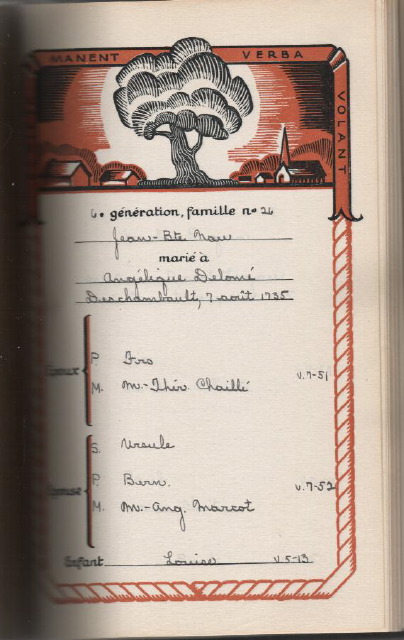 MANENT VERBA VOLANT
6e génération, famille no 26
Jean-Bte Nau
marié à
Angélique Delomé
Deschambault, 7 août 1735
P. Frs
M. M.-Thér. Chaillé v.7-51
S. Ursule
P. Bern.
v.7-52
M. M.-Ang. Marcot
Enfant Louise v.5-13